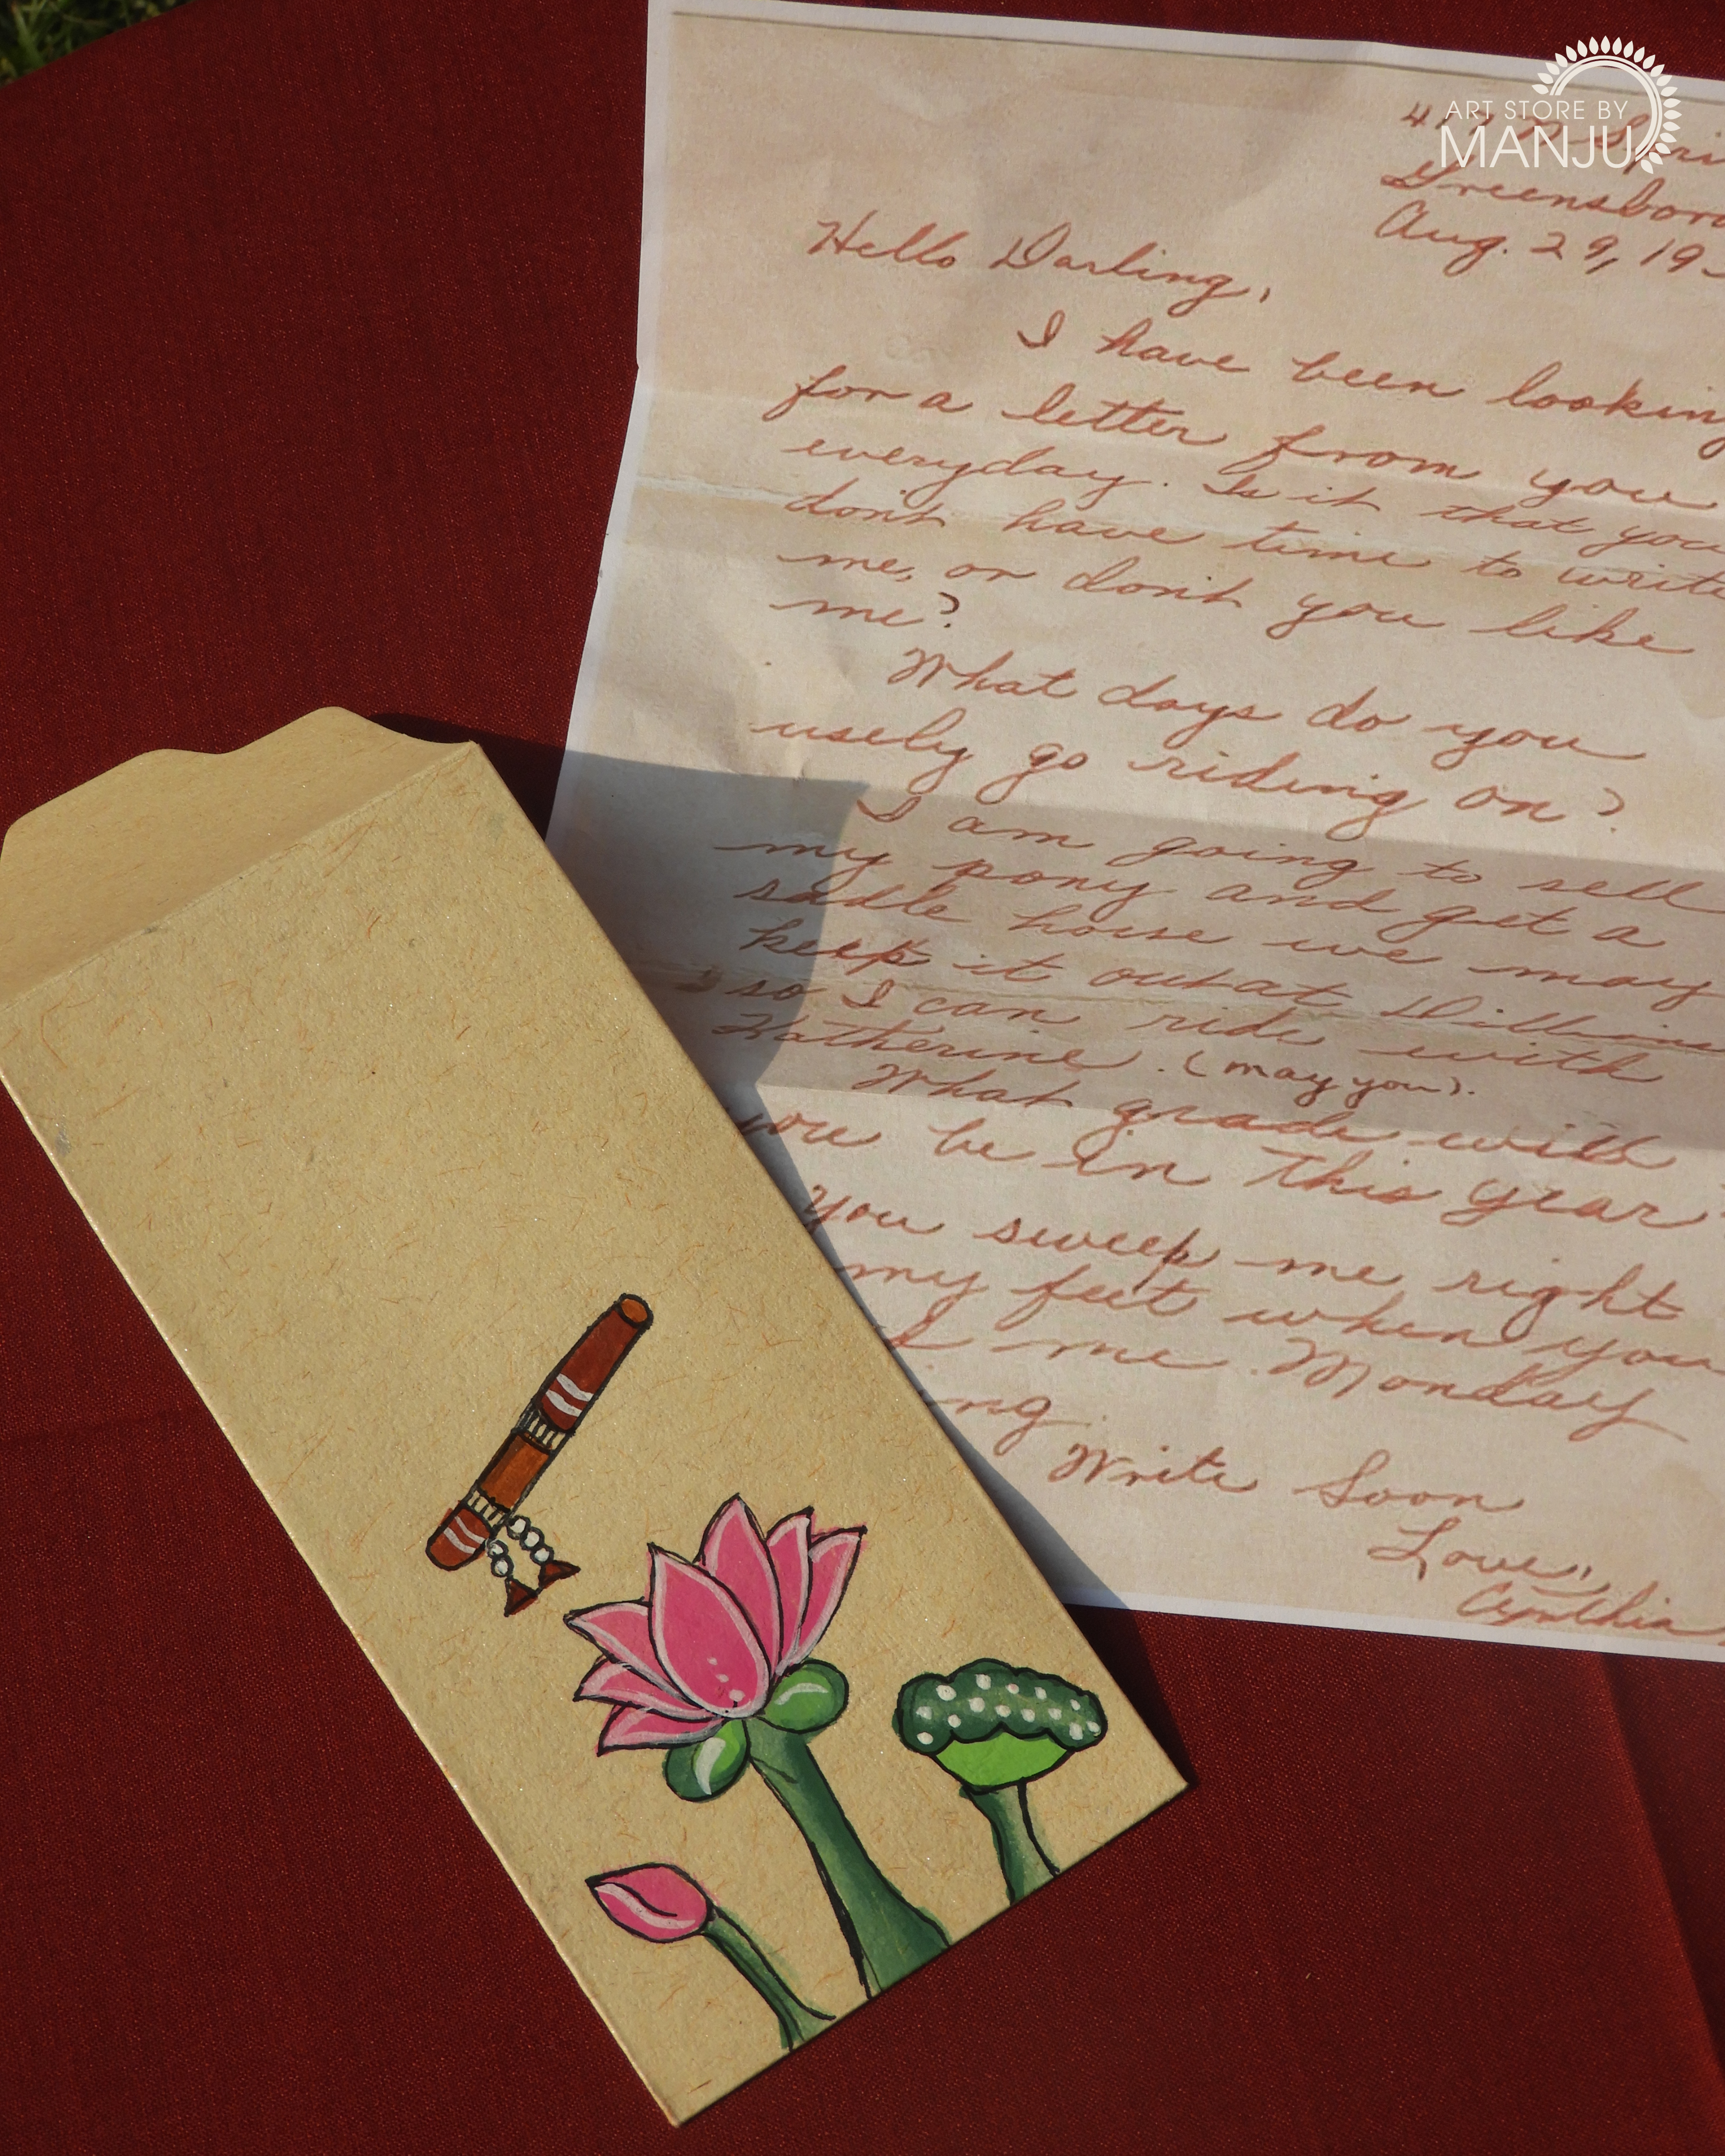 ART STORE BY
MANJU
Greensboro
Aug. 29, 19
Hello Darling,
I have been looking
for a letter from you
everyday. Is it that you
don't have time to write
me, or don't you like
me?
What days do you
usely go riding on?
I am going to sell
my pony and get a
sadle horse we may
keep it out at
so I can ride with
Katherine. (may you).
What grade will
you be in this year?
You sweep me right
my feet when you
me Monday
ng
Write Soon
Love,
Cynthia